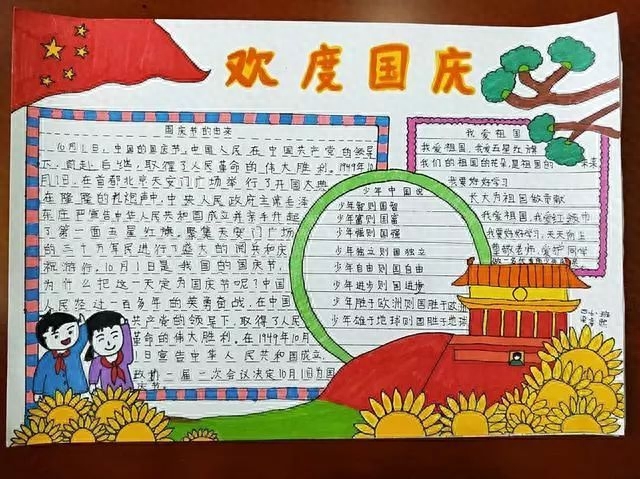 欢度国庆
国庆节的由来
10月1日,中国的国庆节,中国人民在中国共产党的领导
下,前赴后继,取得了人民革命的伟大胜利。1949年10
月1日,在首都北京天安门广场举行了开国大典
在隆隆的礼炮声中,中央人民政府主席毛泽
东庄严宣告中华人民共和国成立并亲手升起
了第一面五星红旗。聚集天安门广场
的三十万军民进行了盛大的阅兵和庆
祝游行,10月1日是我国的国庆节,
为什么把这一天定为国庆节呢?中国
人民经过一百多年的英勇奋战,在中国
共产党的领导下,取得了人民
革命的伟大胜利。在1949年10月
1日宣告中华人民共和国成立,
政协一届二次会议决定10月1日为国
庆节
少年中国说
少年智则国智
少年富则国富
少年强则国强
少年独立则国独立
少年自由则国自由
少年进步则国进步
少年胜于欧洲则国胜于欧洲
少年雄于地球则国雄于地球
我爱祖国
我爱祖国,我爱五星红旗
我们的祖国的花朵,是祖国的未来
我要好好学习
长大为祖国做贡献
我爱祖国,我爱红领巾
我要好好学习,天天向上
尊敬老师,爱护同学